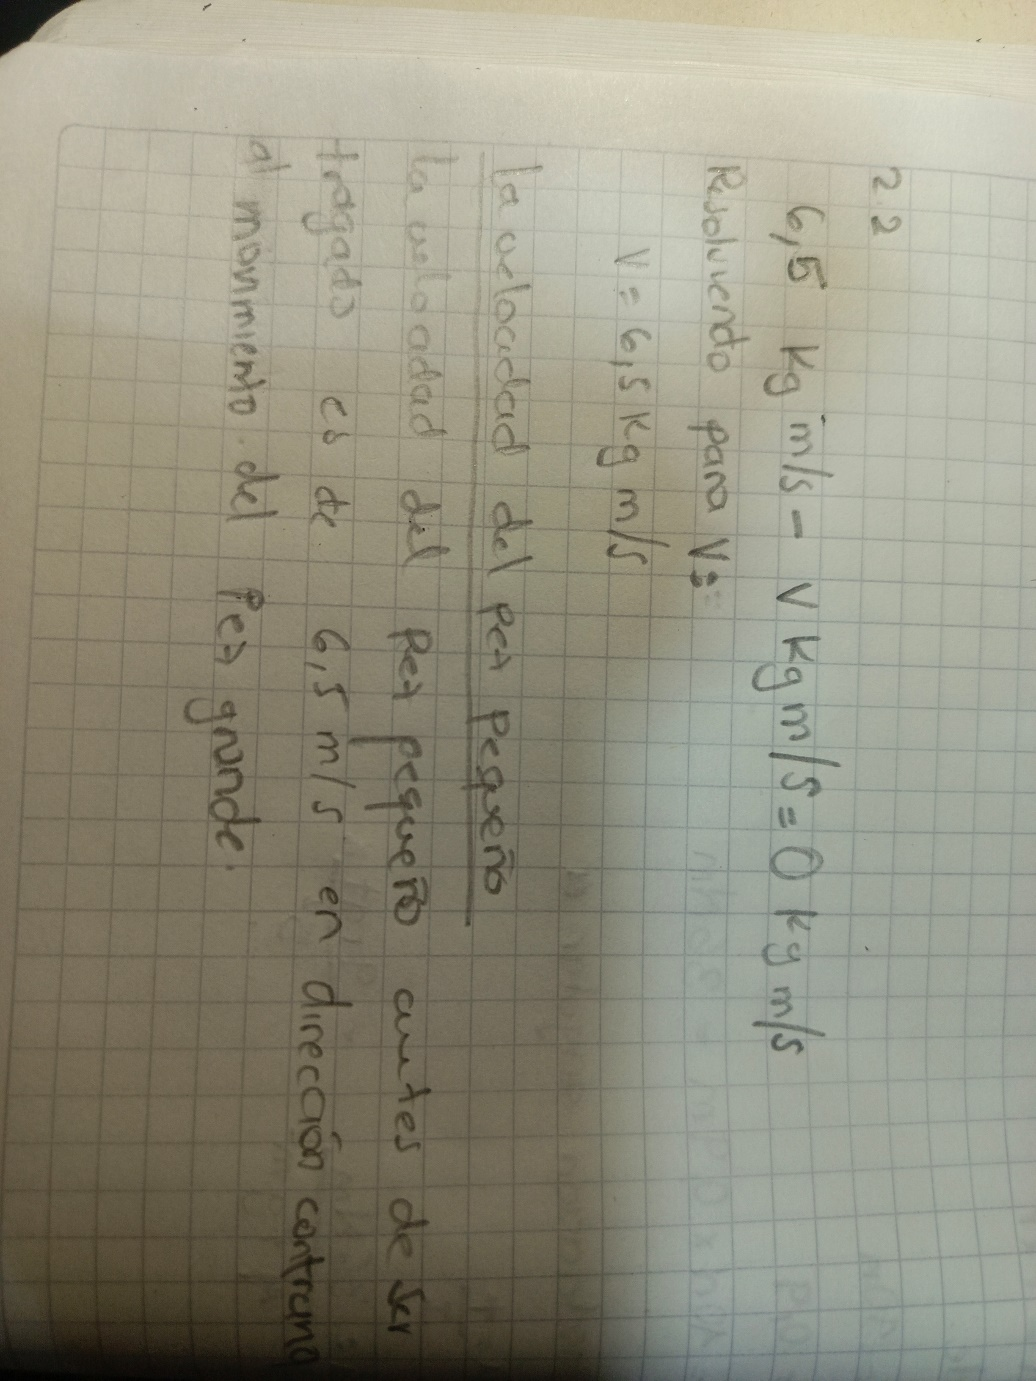 2.2
6,5 kg m/s - v kg m/s = 0 kg m/s
Resolviendo para V:
V = 6,5 kg m/s
La velocidad del pez pequeño
La velocidad del Pez pequeño antes de ser
tragado es de 6,5 m/s en dirección contrario
al movimiento del Pez grande.